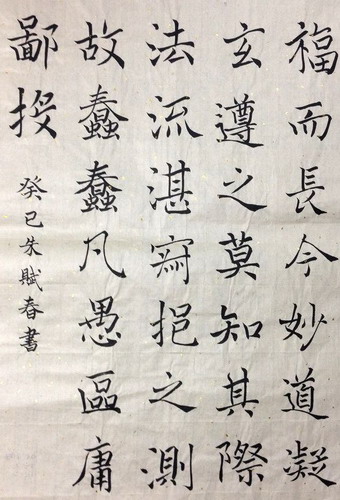 福而長今妙道凝
玄遵之莫知其際
法流湛寂挹之測
故蠢蠢凡愚區庸
鄙投
癸巳朱賦春書